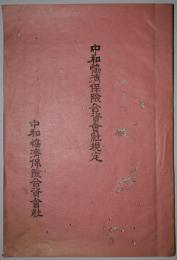 中和協済保険合資會社規定
中和協濟保險合資會社